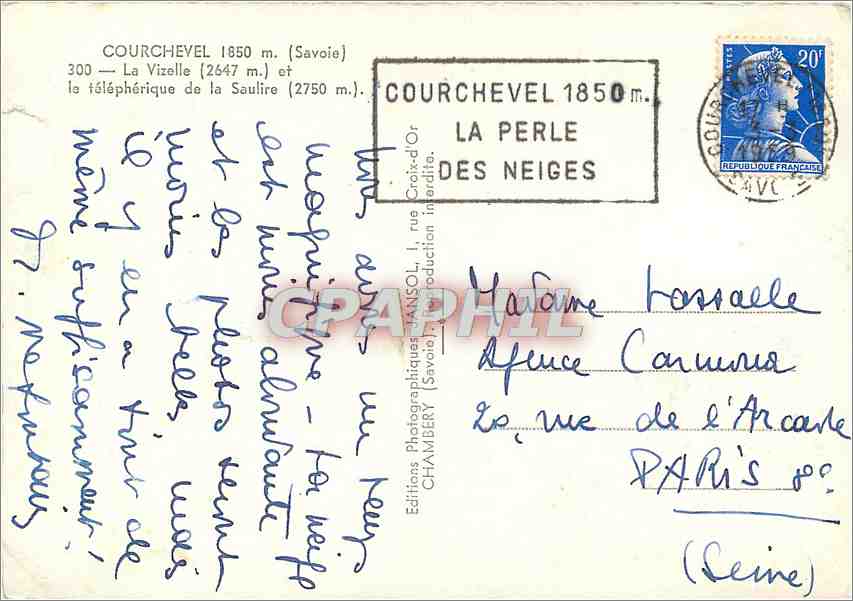 COURCHEVEL 1850 m. (Savoie)
300 — La Vizelle (2647 m.) et
le téléphérique de la Saulire (2750 m.).
COURCHEVEL 1850 m.
LA PERLE
DES NEIGES
20F
POSTES
REPUBLIQUE FRANÇAISE
COURCHEVEL
17 H
SAVOIE
Editions Photographiques JANSOL, 1, rue Croix-d'Or
CHAMBERY (Savoie). Reproduction interdite.
CPAPHIL
Nous avons un temps
magnifique - la neige
est moins abondante
et les photos seront
moins belles, mais
il y en a tout de
même suffisamment!
Madame Lassalle
Agence Carmona
20, rue de l'Arcade
PARIS 8e
(Seine)